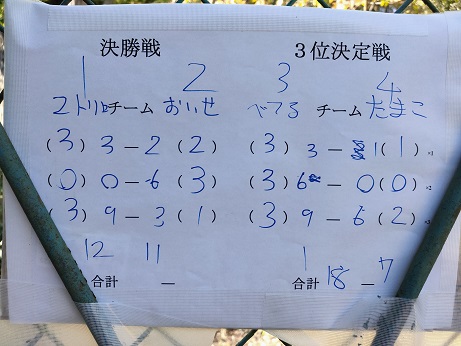 決勝戦 3位決定戦
1 2 3 4
チーム おいせ べてる チーム たまこ
(3) 3 － 2 (2) (3) 3 － 1 (1)
(0) 0 － 6 (3) (3) 6 － 0 (0)
(3) 9 － 3 (1) (3) 9 － 6 (2)
12 11 1
合計 － 合計 18 － 7